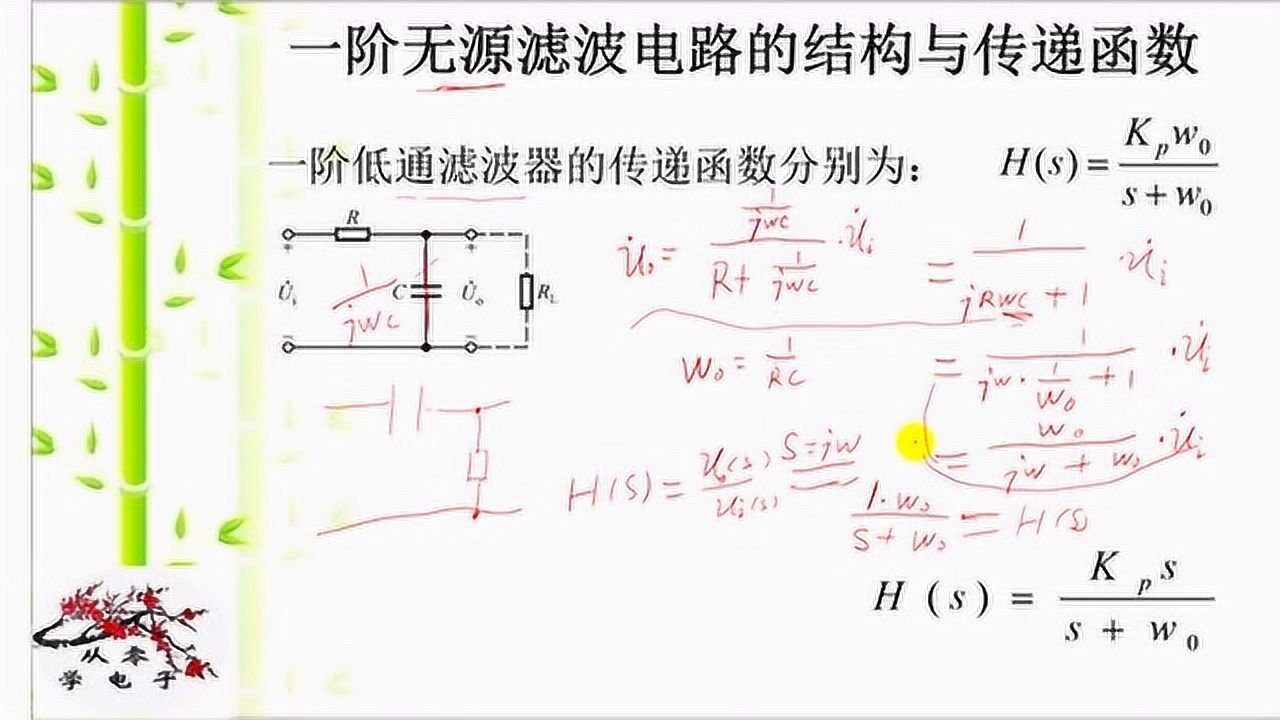 一阶无源滤波电路的结构与传递函数
一阶低通滤波器的传递函数分别为： H(s)=K_p w_0/(s+w_0)
R
U̇_i 1/(jwc) C U̇_o R_L
u̇_o = (1/(jwc))/(R+1/(jwc)) ·u̇_i = 1/(jRwc+1) ·u̇_i
w_0 = 1/(RC) = 1/(jw·1/w_0+1) ·u̇_i
= w_0/(jw+w_0) ·u̇_i
H(s) = u_o(s)/u_i(s) s=jw 1·w_0/(s+w_0) = H(s)
H(s) = K_p s/(s+w_0)
从零
学电子